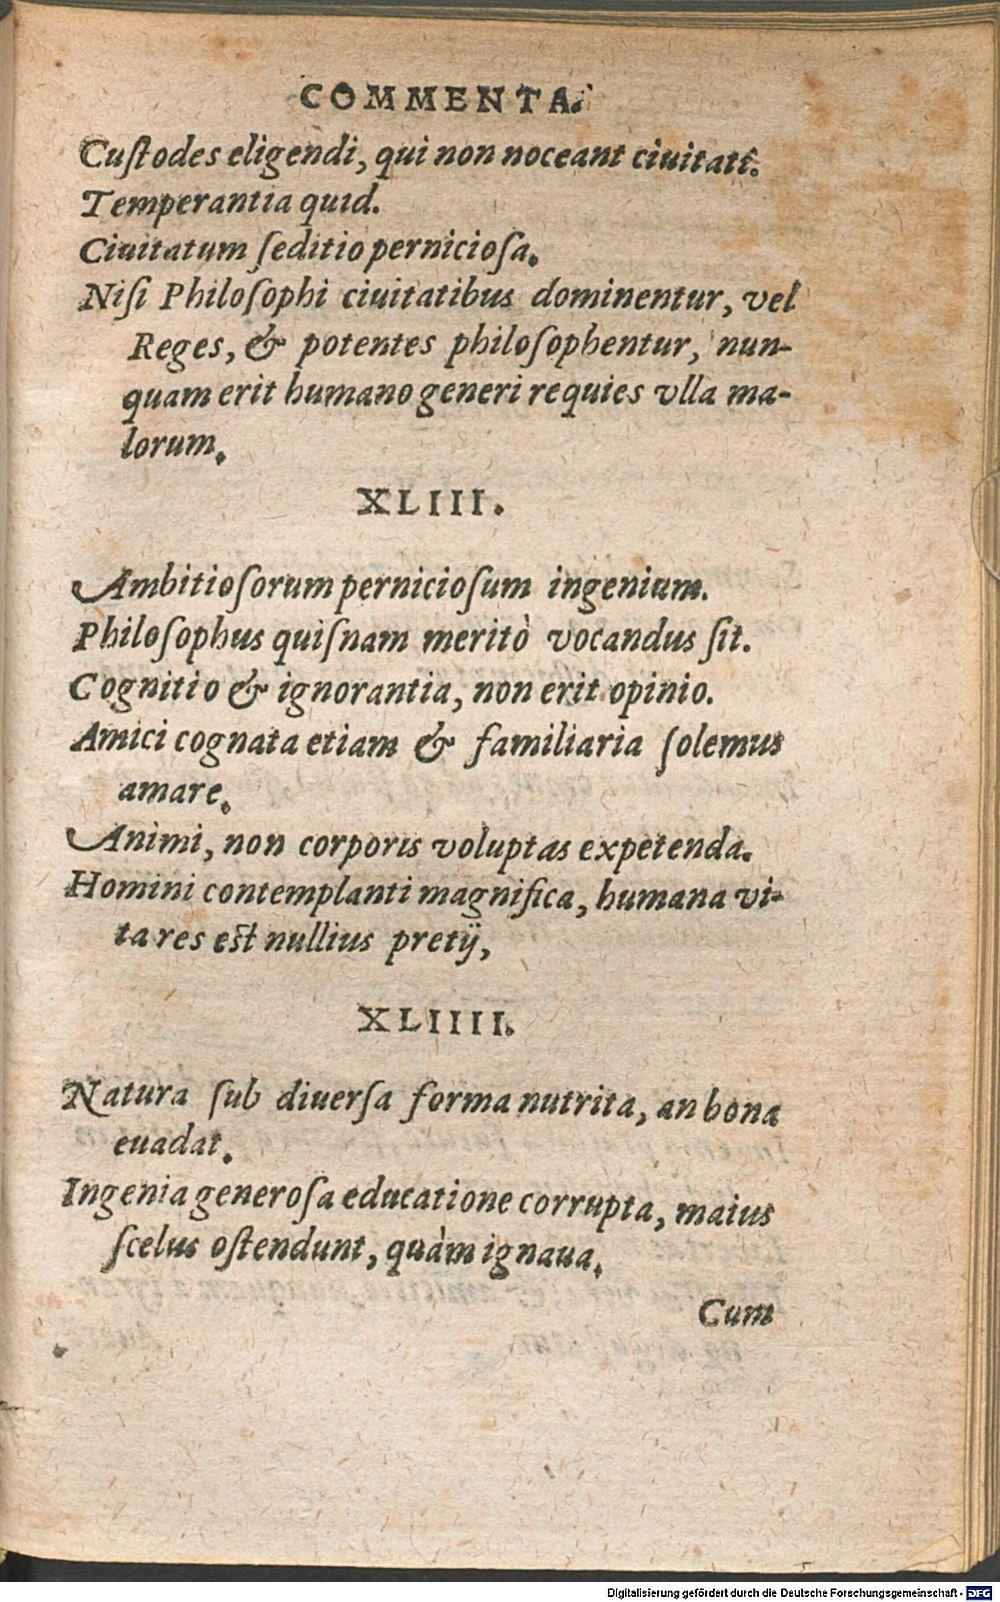 COMMENTA.
Cuſtodes eligendi, qui non noceant ciuitati.
Temperantia quid.
Ciuitatum ſeditio pernicioſa.
Niſi Philoſophi ciuitatibus dominentur, vel
Reges, & potentes philoſophentur, nun-
quam erit humano generi requies vlla ma-
lorum.
XLIII.
Ambitioſorum pernicioſum ingenium.
Philoſophus quiſnam meritò vocandus ſit.
Cognitio & ignorantia, non erit opinio.
Amici cognata etiam & familiaria ſolemus
amare.
Animi, non corporis voluptas expetenda.
Homini contemplanti magnifica, humana vi-
ta res est nullius pretij,
XLIIII.
Natura ſub diuerſa forma nutrita, an bona
euadat.
Ingenia generoſa educatione corrupta, maius
ſcelus oſtendunt, quàm ignaua.
Cum
Digitalisierung gefördert durch die Deutsche Forschungsgemeinschaft - DFG